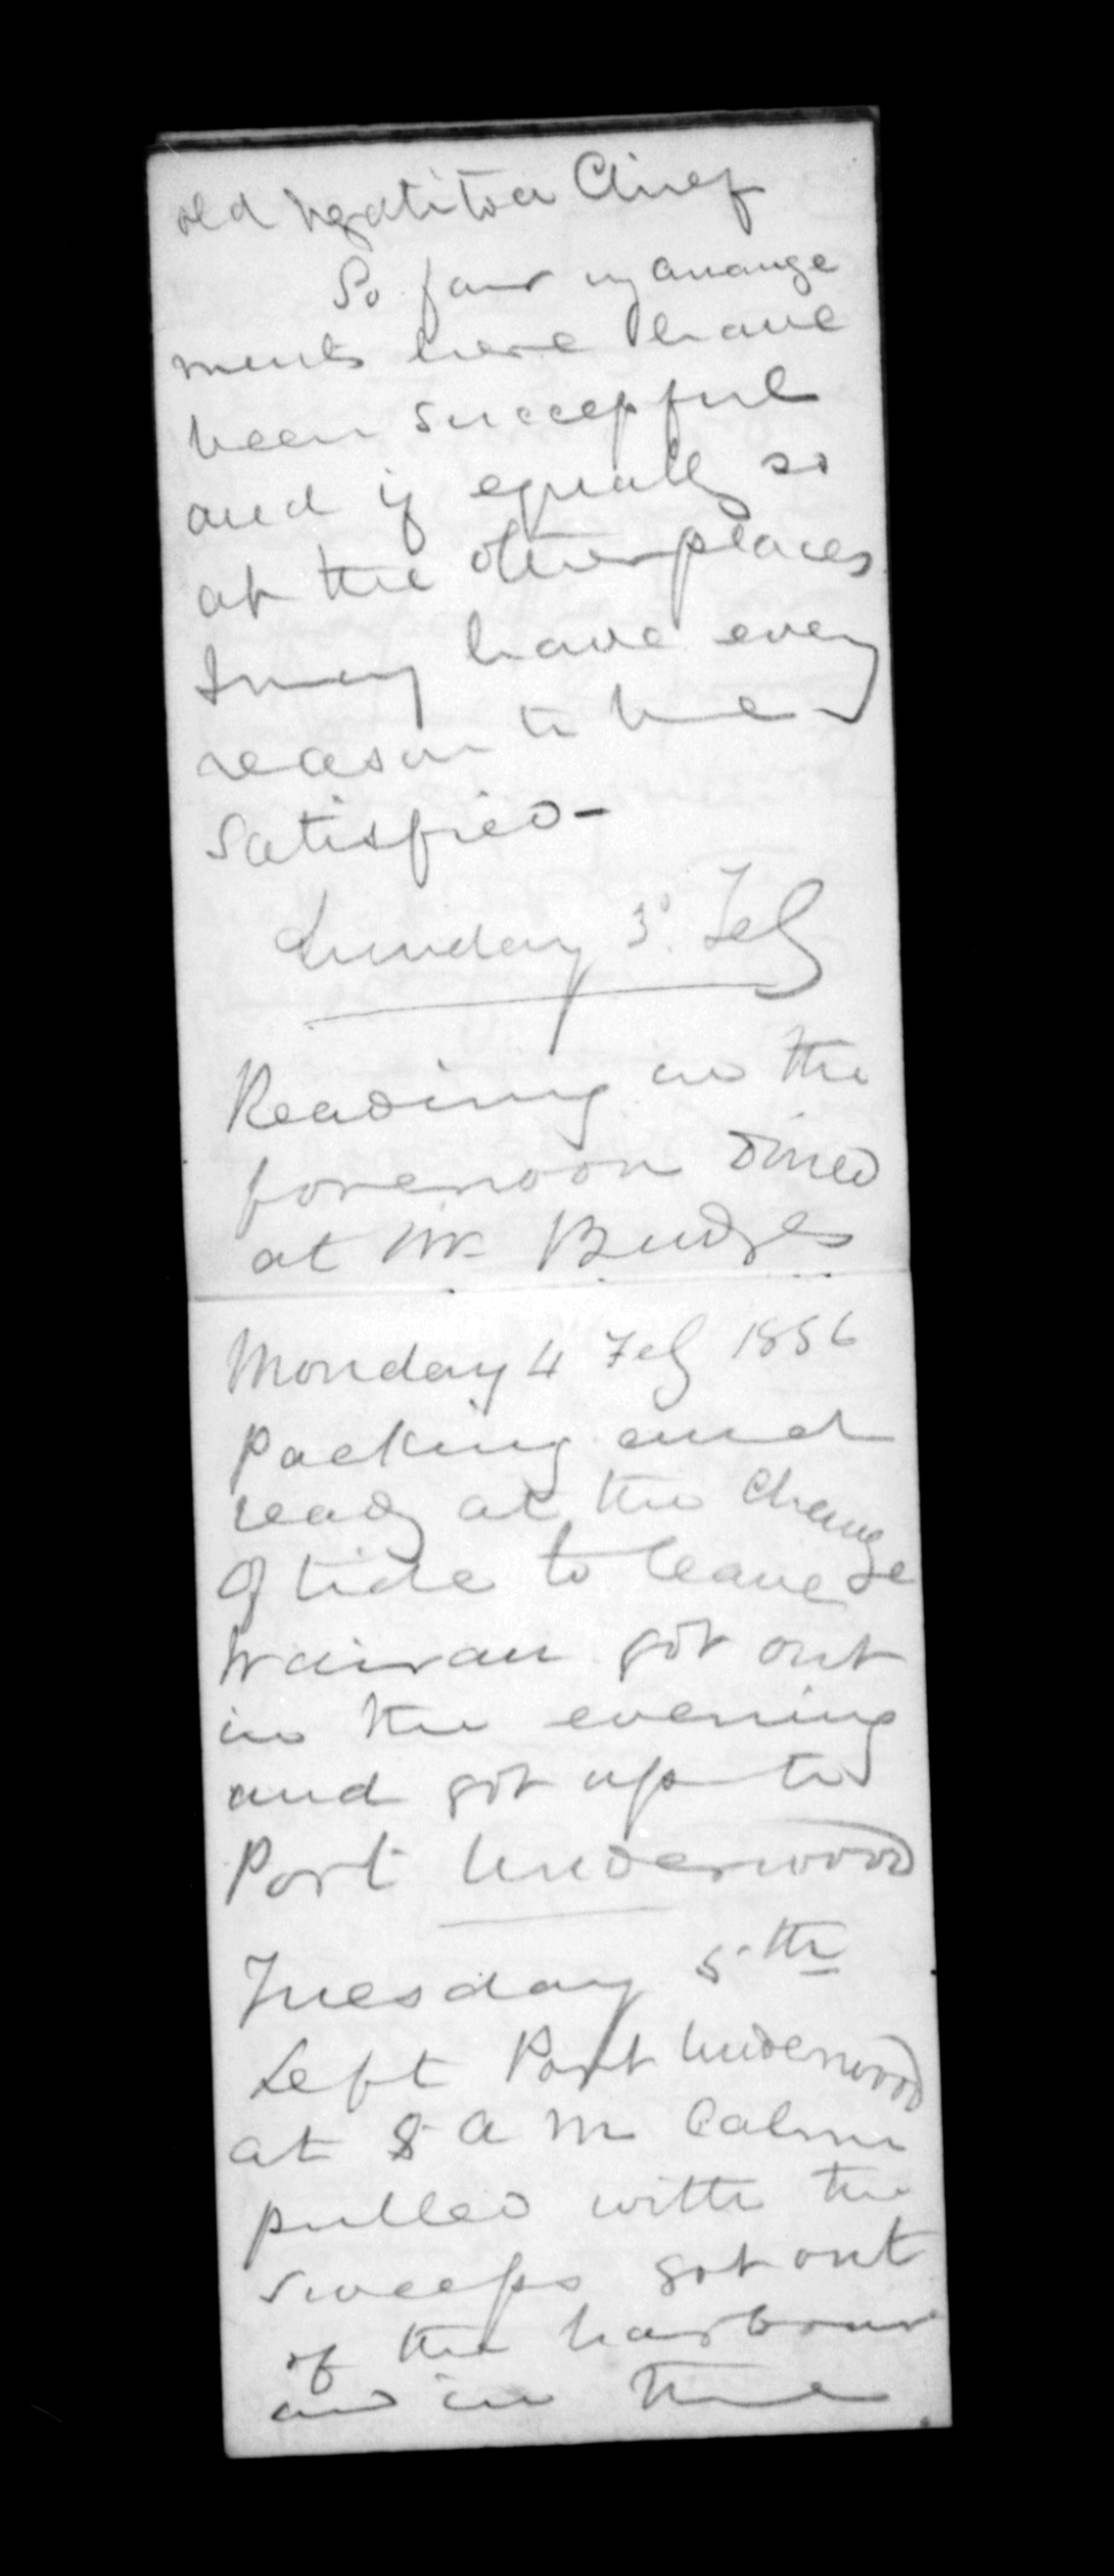 old Ngatitoa Chief
So far my arrange
ments here have
been successful
and if equally so
at the other places
I may have every
reason to be
satisfied -
Sunday 3d. Feby
Reading in the
forenoon dined
at Mr Budges
Monday 4 Feby 1856
Packing and
ready at the change
of tide to leave
Wairau got out
in the evening
and got up to
Port Underwood
Tuesday 5th
Left Port Underwood
at 8 A M Calm
pulled with the
sweeps got out
of the harbour
and in the